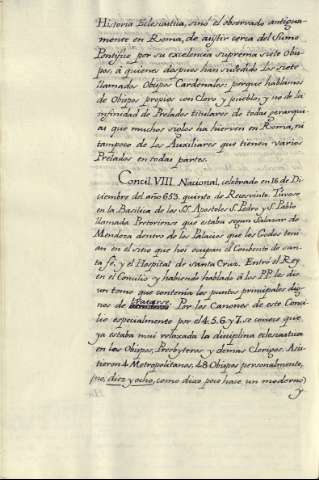 Historia Eclesiastica, sino el observado antigua-
mente en Roma, de asistir cerca del Sumo
Pontifice por su excelencia suprema siete Obis-
pos, à quienes despues han sucedido los siete
llamados Obispos Cardenales: porque hablamos
de Obispos propios con Clero y pueblo, y no de la
infinidad de Prelados titulares de todas gerarqui-
as que muchos siglos ha hierven en Roma, ni
tampoco de los Auxiliares que tienen varios
Prelados en todas partes.
Concil. VIII. Nacional, celebrado en 16 de Di-
ciembre del año 653. quinto de Recesvinto. Túvose
en la Basilica de los SS. Apostoles S. Pedro y S. Pablo
llamada Pretoriense que estaba segun Salazar de
Mendoza dentro de los Palacios que los Godos tení-
an en el sitio que hoy ocupan el Convento de San-
ta fé, y el Hospital de Santa Cruz. Entró el Rey
en el Concilio y habiendo hablado à los PP. les dio
un tomo que contenia los puntos principales dig-
nos de tratarse. Por los Canones de este Conci-
lio especialmente por el 4. 5. 6. y 7. se conoce que
ya estaba mui relaxada la disciplina eclesiastica
en los Obispos, Presbyteros y demas Clerigos. Asis-
tieron 4 Metropolitanos, 48 Obispos personalmente,
(no, diez y ocho, como dixo poco hace un moderno)